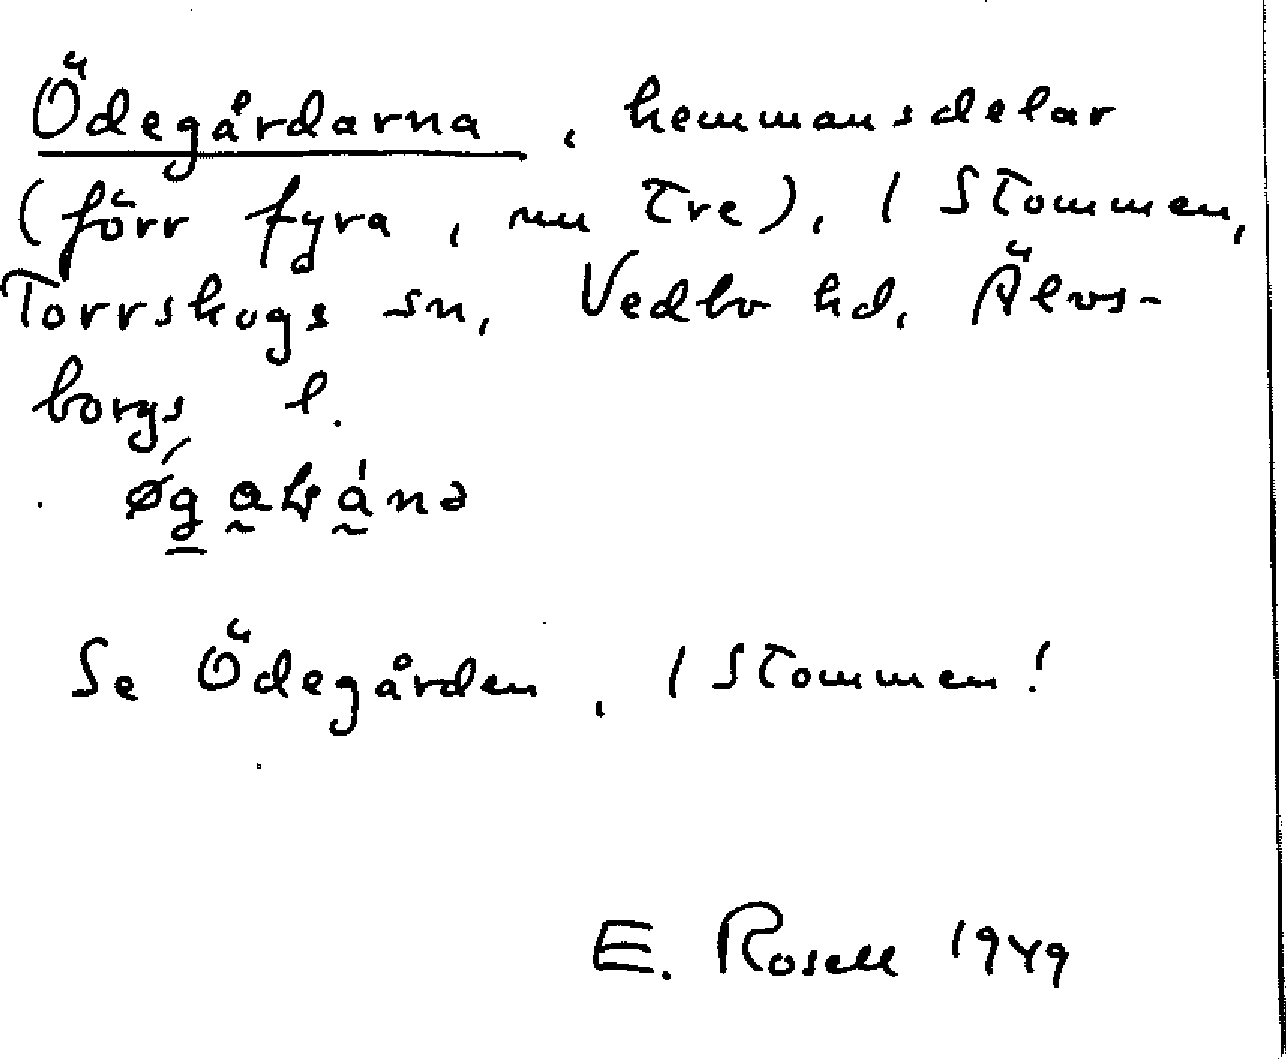 Ödegårdarna, hemmansdelar
(förr fyra, nu tre), 1 Stommen,
Torrskogs sn, Vedbo hd, Älvs-
borgs l.
Se Ödegården, 1 Stommen!
E. Rosell 1949